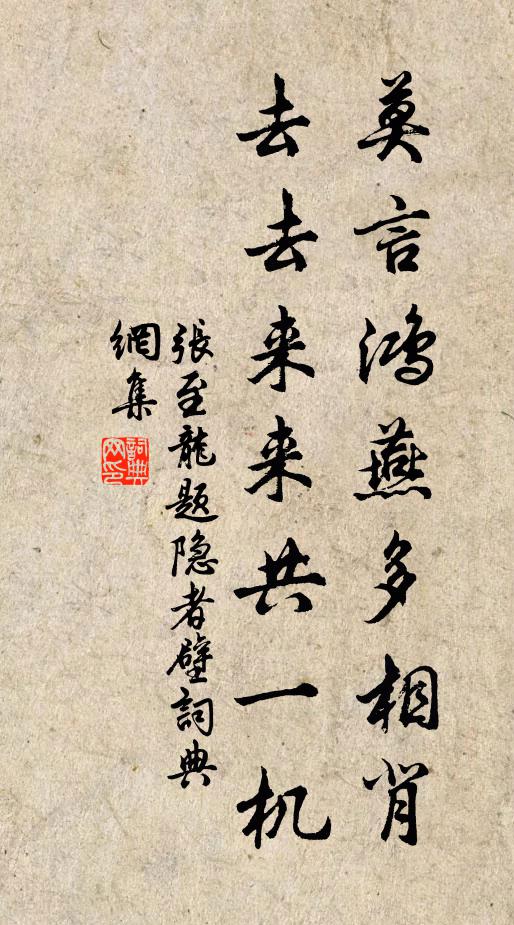 莫言鸿燕多相背
去去来来共一机
張至龍题隐者壁詞典
網集
詞典
网印